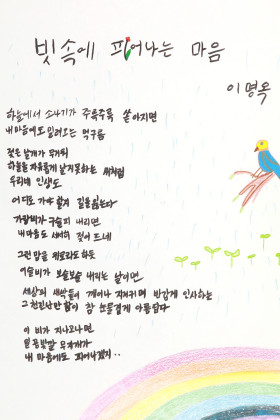 빗속에 피어나는 마음
이명옥
하늘에서 소나기가 주룩주룩 쏟아지면
내 마음에도 밀려오는 먹구름
젖은 날개가 무거워
하늘을 자유롭게 날지 못하는 새처럼
우리네 인생도
어디로 가야 할지 길을 잃는다
가랑비가 구슬피 내리면
내 마음도 서서히 젖어 드네
그런 맘을 위로라도 하듯
이슬비가 보슬보슬 내리는 날이면
세상의 새싹들이 깨어나 지저귀며 반갑게 인사하는
그 천진난만함이 참 눈물겹게 아름답다
이 비가 지나고 나면
일곱 빛깔 무지개가
내 마음에도 피어나겠지..